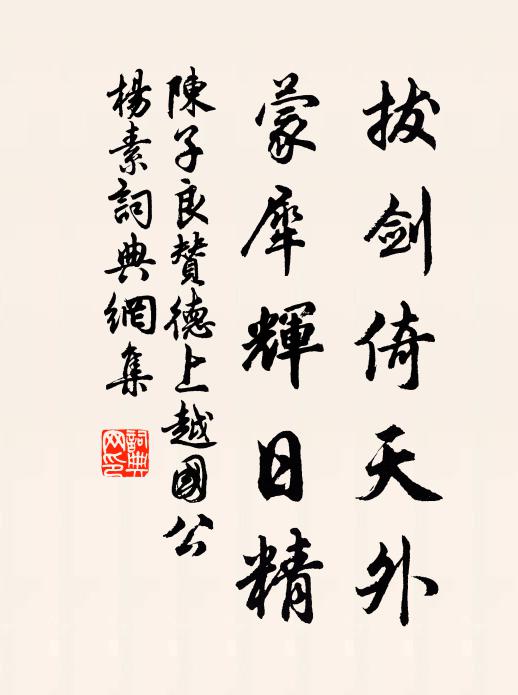 拔剑倚天外
蒙犀輝日精
陳子良賛德上越國公
楊素詞典網集
詞典网印